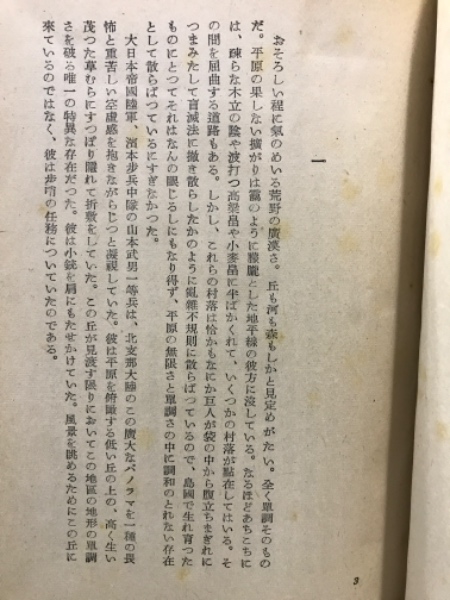 一
おそろしい程に氣のめいる荒野の廣漠さ。丘も河も森もしかと見定めがたい。全く單調そのもの
だ。平原の果しない擴がりは靄のように朦朧とした地平線の彼方に沒している。なるほどあちこちに
は、疎らな木立の陰や波打つ高粱畠や小麥畠に半ばかくれて、いくつかの村落が點在してはいる。そ
の間を屈曲する道路もある。しかし、これらの村落は恰かもなにか巨人が袋の中から腹立ちまぎれに
つまみだして盲滅法に撒き散らしたかのように亂雜不規則に散らばつているので、島國で生れ育つた
ものにとつてそれはなんの眼じるしにもなり得ず、平原の無限さと單調さの中に調和のとれない存在
として散らばつているにすぎなかつた。
大日本帝國陸軍、濱本步兵中隊の山本武男一等兵は、北支那大陸のこの廣大なパノラマを一種の畏
怖と重苦しい空虛感を抱きながらじつと凝視していた。彼は平原を俯瞰する低い丘の上の、高く生い
茂つた草むらにすつぽり隱れて折敷をしていた。この丘が見渡す限りにおいてこの地區の地形の單調
さを破る唯一の特異な存在だつた。彼は小銃を肩にもたせかけていた。風景を眺めるためにこの丘に
來ているのではなく、彼は步哨の任務についていたのである。
3